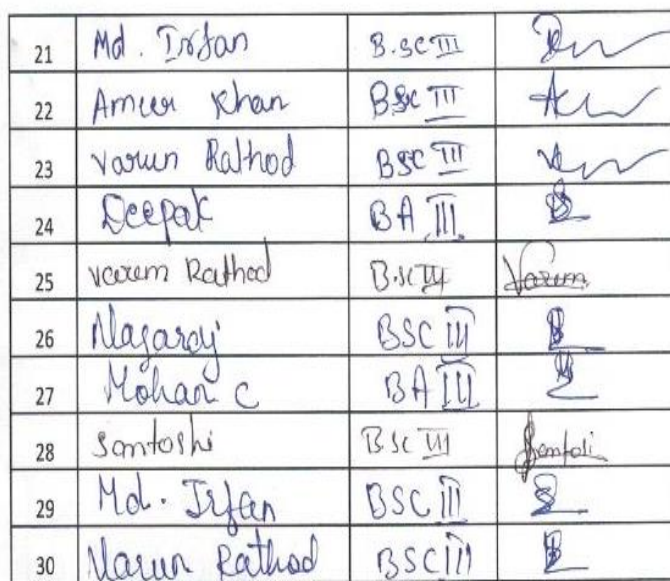 21 Md. Irfan B.SC III
22 Ameer Khan BSC III
23 Varun Rathod BSC III
24 Deepak BA III
25 Varun Rathod B.SC III Varun
26 Nagaraj BSC III
27 Mohan C BA III
28 Santoshi BSC III
29 Md. Irfan BSC III
30 Varun Rathod BSC III